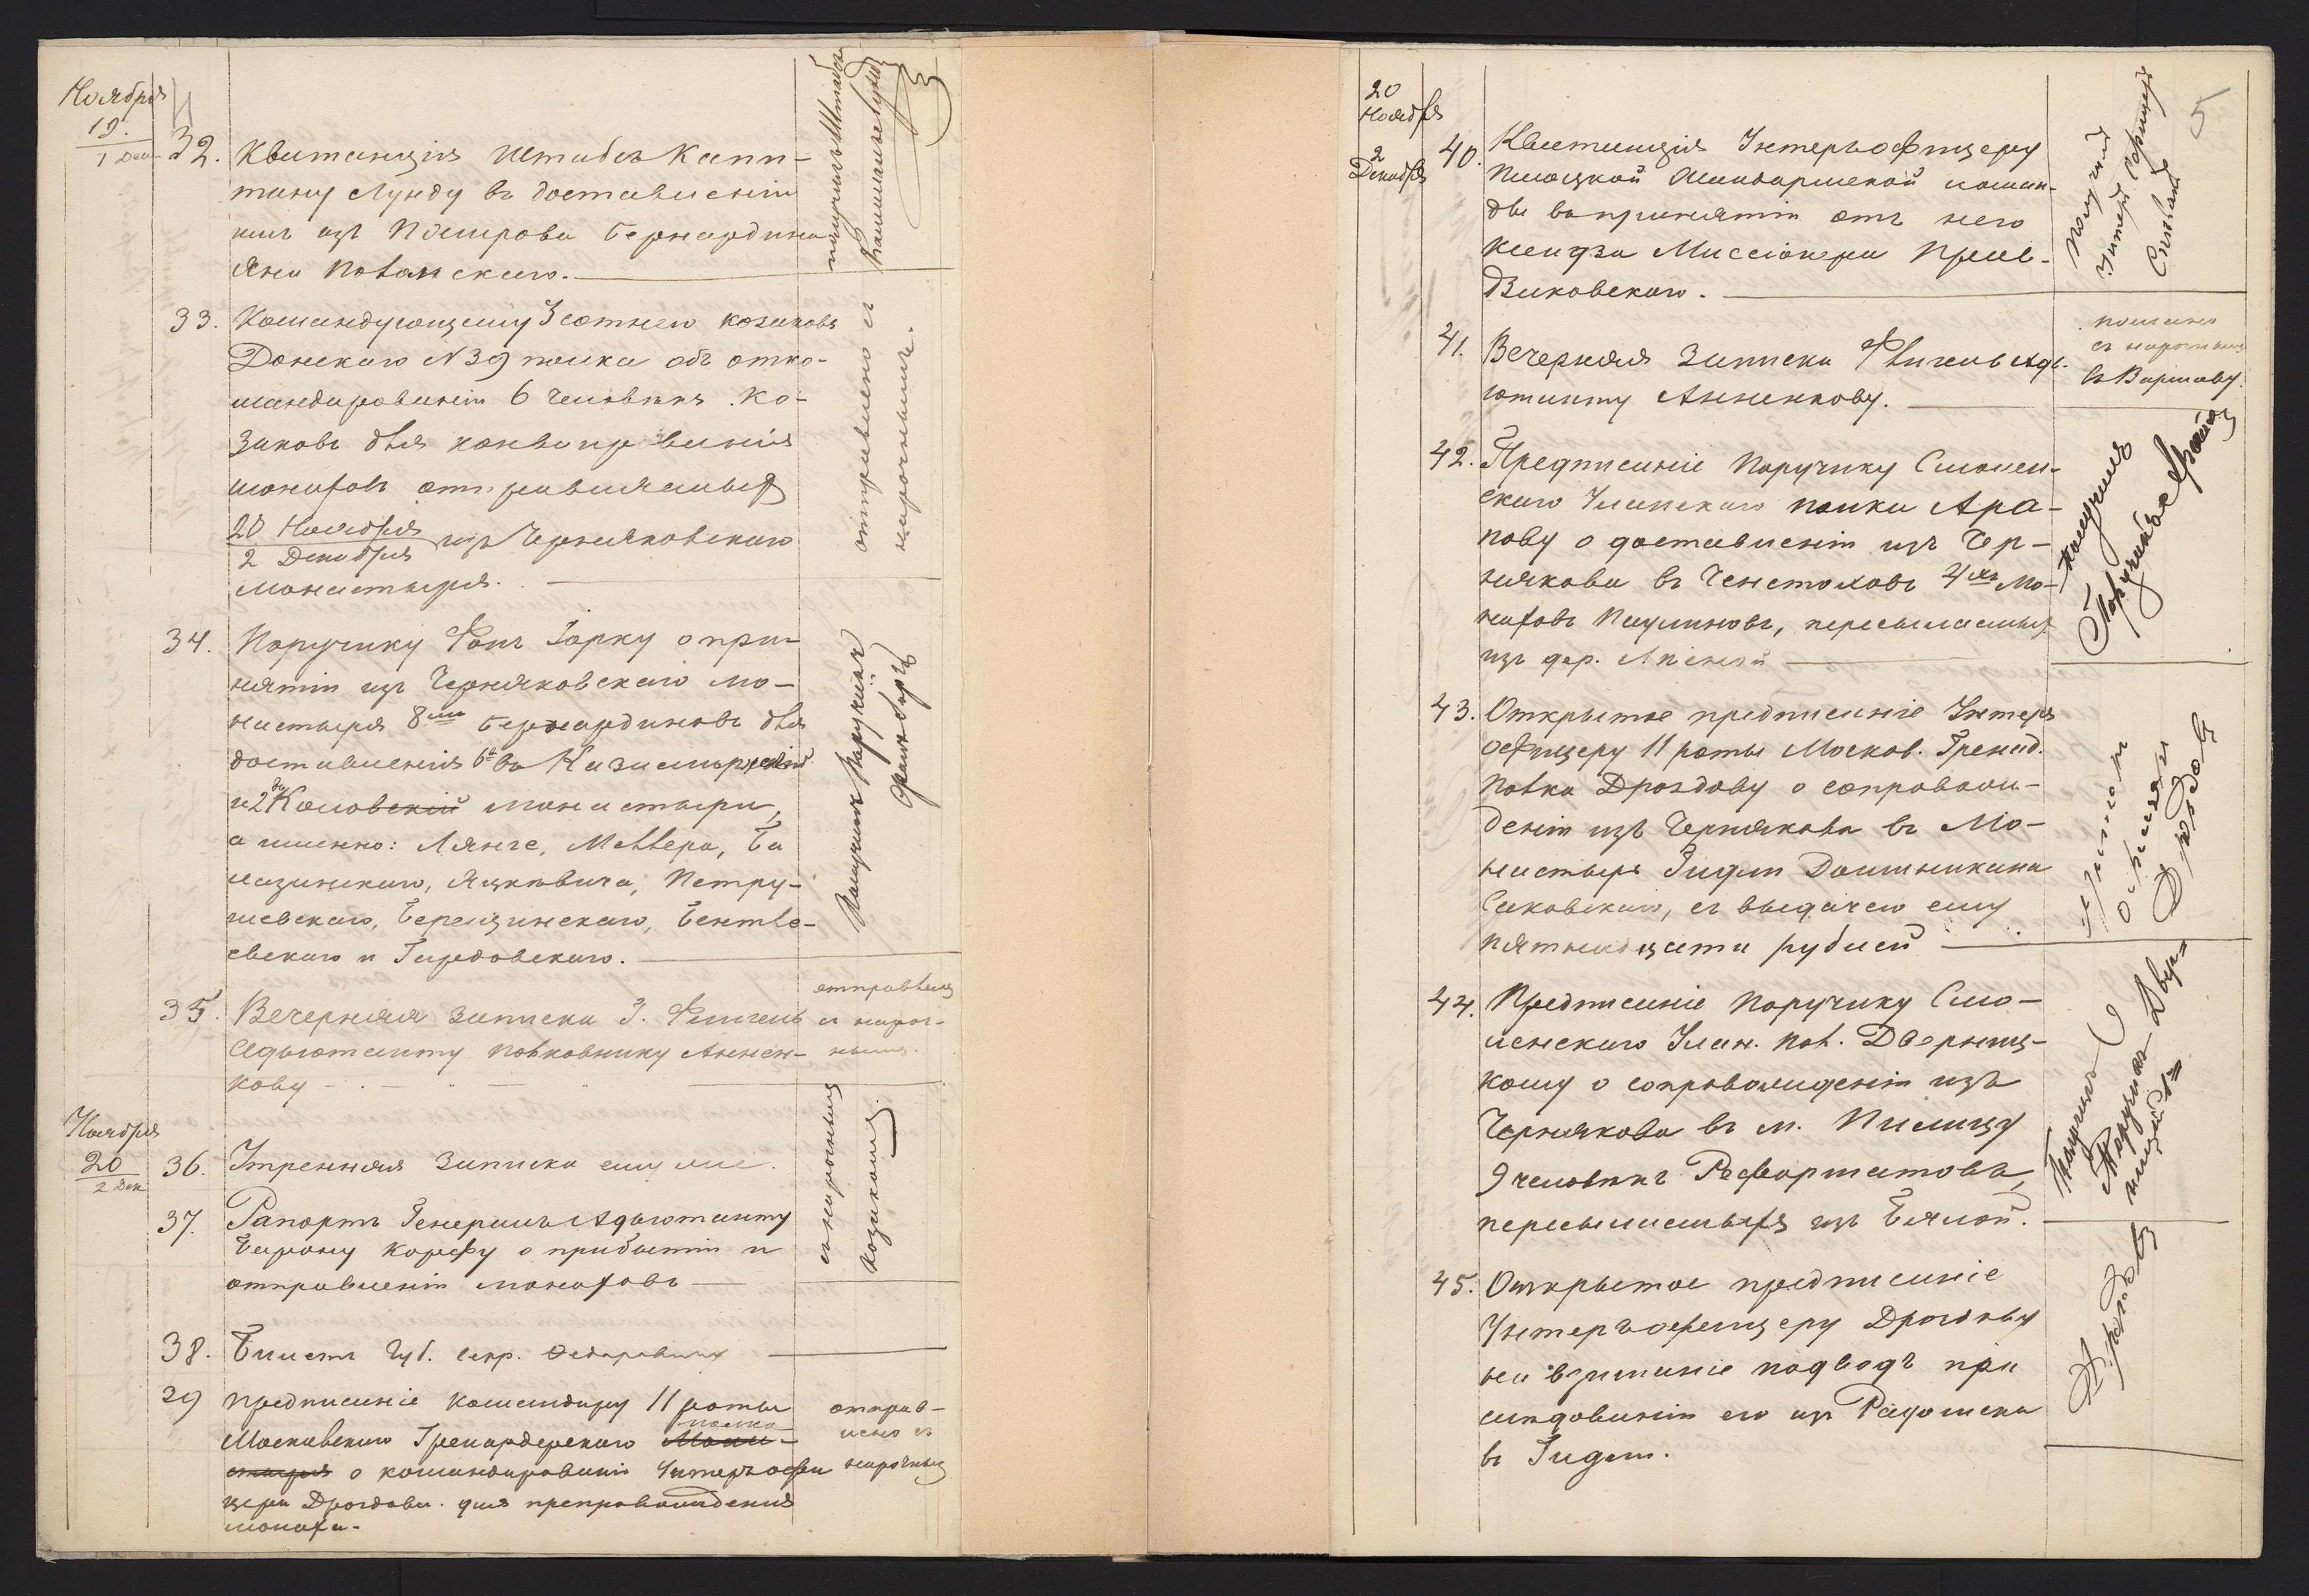 Ноября
19.
1 Дек.
32. Квитанція Штабсъ Капи-
тану Лунду въ доставленіи
имъ изъ Бернардина
Яна
получилъ Штабсъ
Капитанъ Лундъ
33. Командующему 3 сотнею козаковъ
Донскаго N 39 полка объ отко-
мандированіи 6 человѣкъ Ко-
заковъ для конвоированія
монаховъ отправляемыхъ
20 Ноября
2 Декабря
изъ Черняковскаго
монастыря.
отправлено съ
нарочнымъ.
34. Поручику Фонъ Торку о при-
нятіи изъ Черняковскаго мо-
настыря 8ми Бернардиновъ для
доставленія 6 въ Казимиржскій
и 2 въ Коловскій монастыри,
а именно: Лянге, Меллера, Ба
лазинскаго, Яцкевича, Петру-
шевскаго, Березинскаго,
евскаго и Гирдовскаго.
Получилъ Поручикъ
35. Вечерняя записка Г. Флигель
Адъютанту Полковнику Аннен-
кову
отправлена
съ нароч-
нымъ.
Ноября
20
2 Дек
36. Утренняя записка ему же.
37. Рапортъ Генералъ Адъютанту
Барону Корфу о прибытіи и
отправленіи монаховъ
съ нарочнымъ
козакомъ.
38. Билетъ Губ. Секр.
39 Предписаніе Командиру 11 роты
Московскаго Гренадерскаго Мона-
полка
стыря о командированіи Унтеръ офи
цера Дроздова для препровожденія
монаха.
отправ-
лено съ
нарочнымъ
5
20
Ноября
2
Декабря
40. Квитанція Унтеръ офицеру
Плоцкой Жандармской коман-
ды въ принятіи отъ него
ксендза Миссіонера
Дзиковскаго.
Получилъ
Унтеръ Офицеръ
41. Вечерняя записка Флигель Адъ-
ютанту Анненкову.
послано
съ нарочнымъ
въ Варшаву.
42. Предписаніе Поручику Смолен-
скаго Уланскаго полка Ара-
пову о доставленіи изъ Чер-
някова въ Ченстоховъ 4хъ Мо-
наховъ Паулиновъ, пересылаемыхъ
изъ дер.
Получилъ
Поручикъ Араповъ
43. Открытое предписаніе Унтеръ
офицеру 11 роты Москов. Гренад.
Полка Дроздову о сопровож-
деніи изъ Чернякова въ Мо-
настырь Гидли Доминикана
Саковскаго, съ выдачею ему
пятнадцати рублей
Дроздовъ
44. Предписаніе Поручику Смо-
ленскаго Улан. Пол. Дверниц-
кому о сопровожденіи изъ
Чернякова въ м. Пилицу
9 человѣкъ Реформатовъ,
пересылаемыхъ изъ Бялой.
Получилъ
Поручикъ Двер-
ницкій
45. Открытое предписаніе
Унтеръ офицеру Дроздову
на взиманіе подводъ при
слѣдованіи его изъ Радомска
въ Гидли.
Дроздовъ